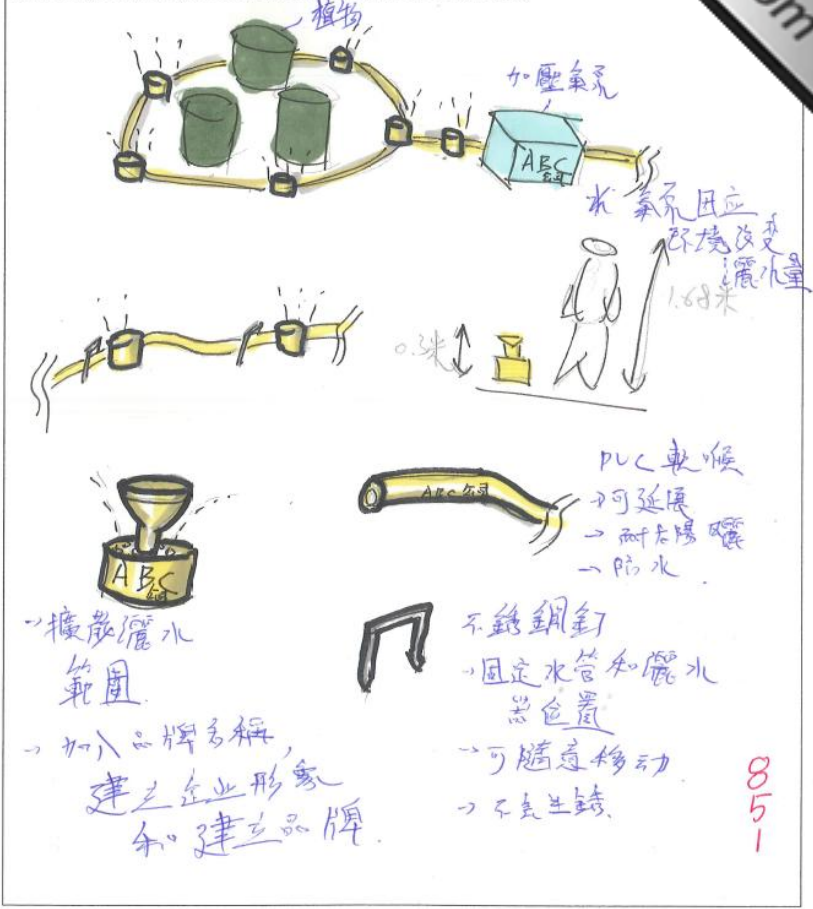 植物
加壓氣泵
ABC
公司
氣泵因应
环境改变
灑水量
1.68米
0.3米
ABC公司
PVC軟喉
→可延展
→耐太陽曬
→防水
ABC
公司
→擴散灑水
範圍
→加入品牌名稱,
建立企业形象
和建立品牌.
不銹鋼釘
→固定水管和灑水
器位置
→可隨意移动
→不会生銹.
851
om